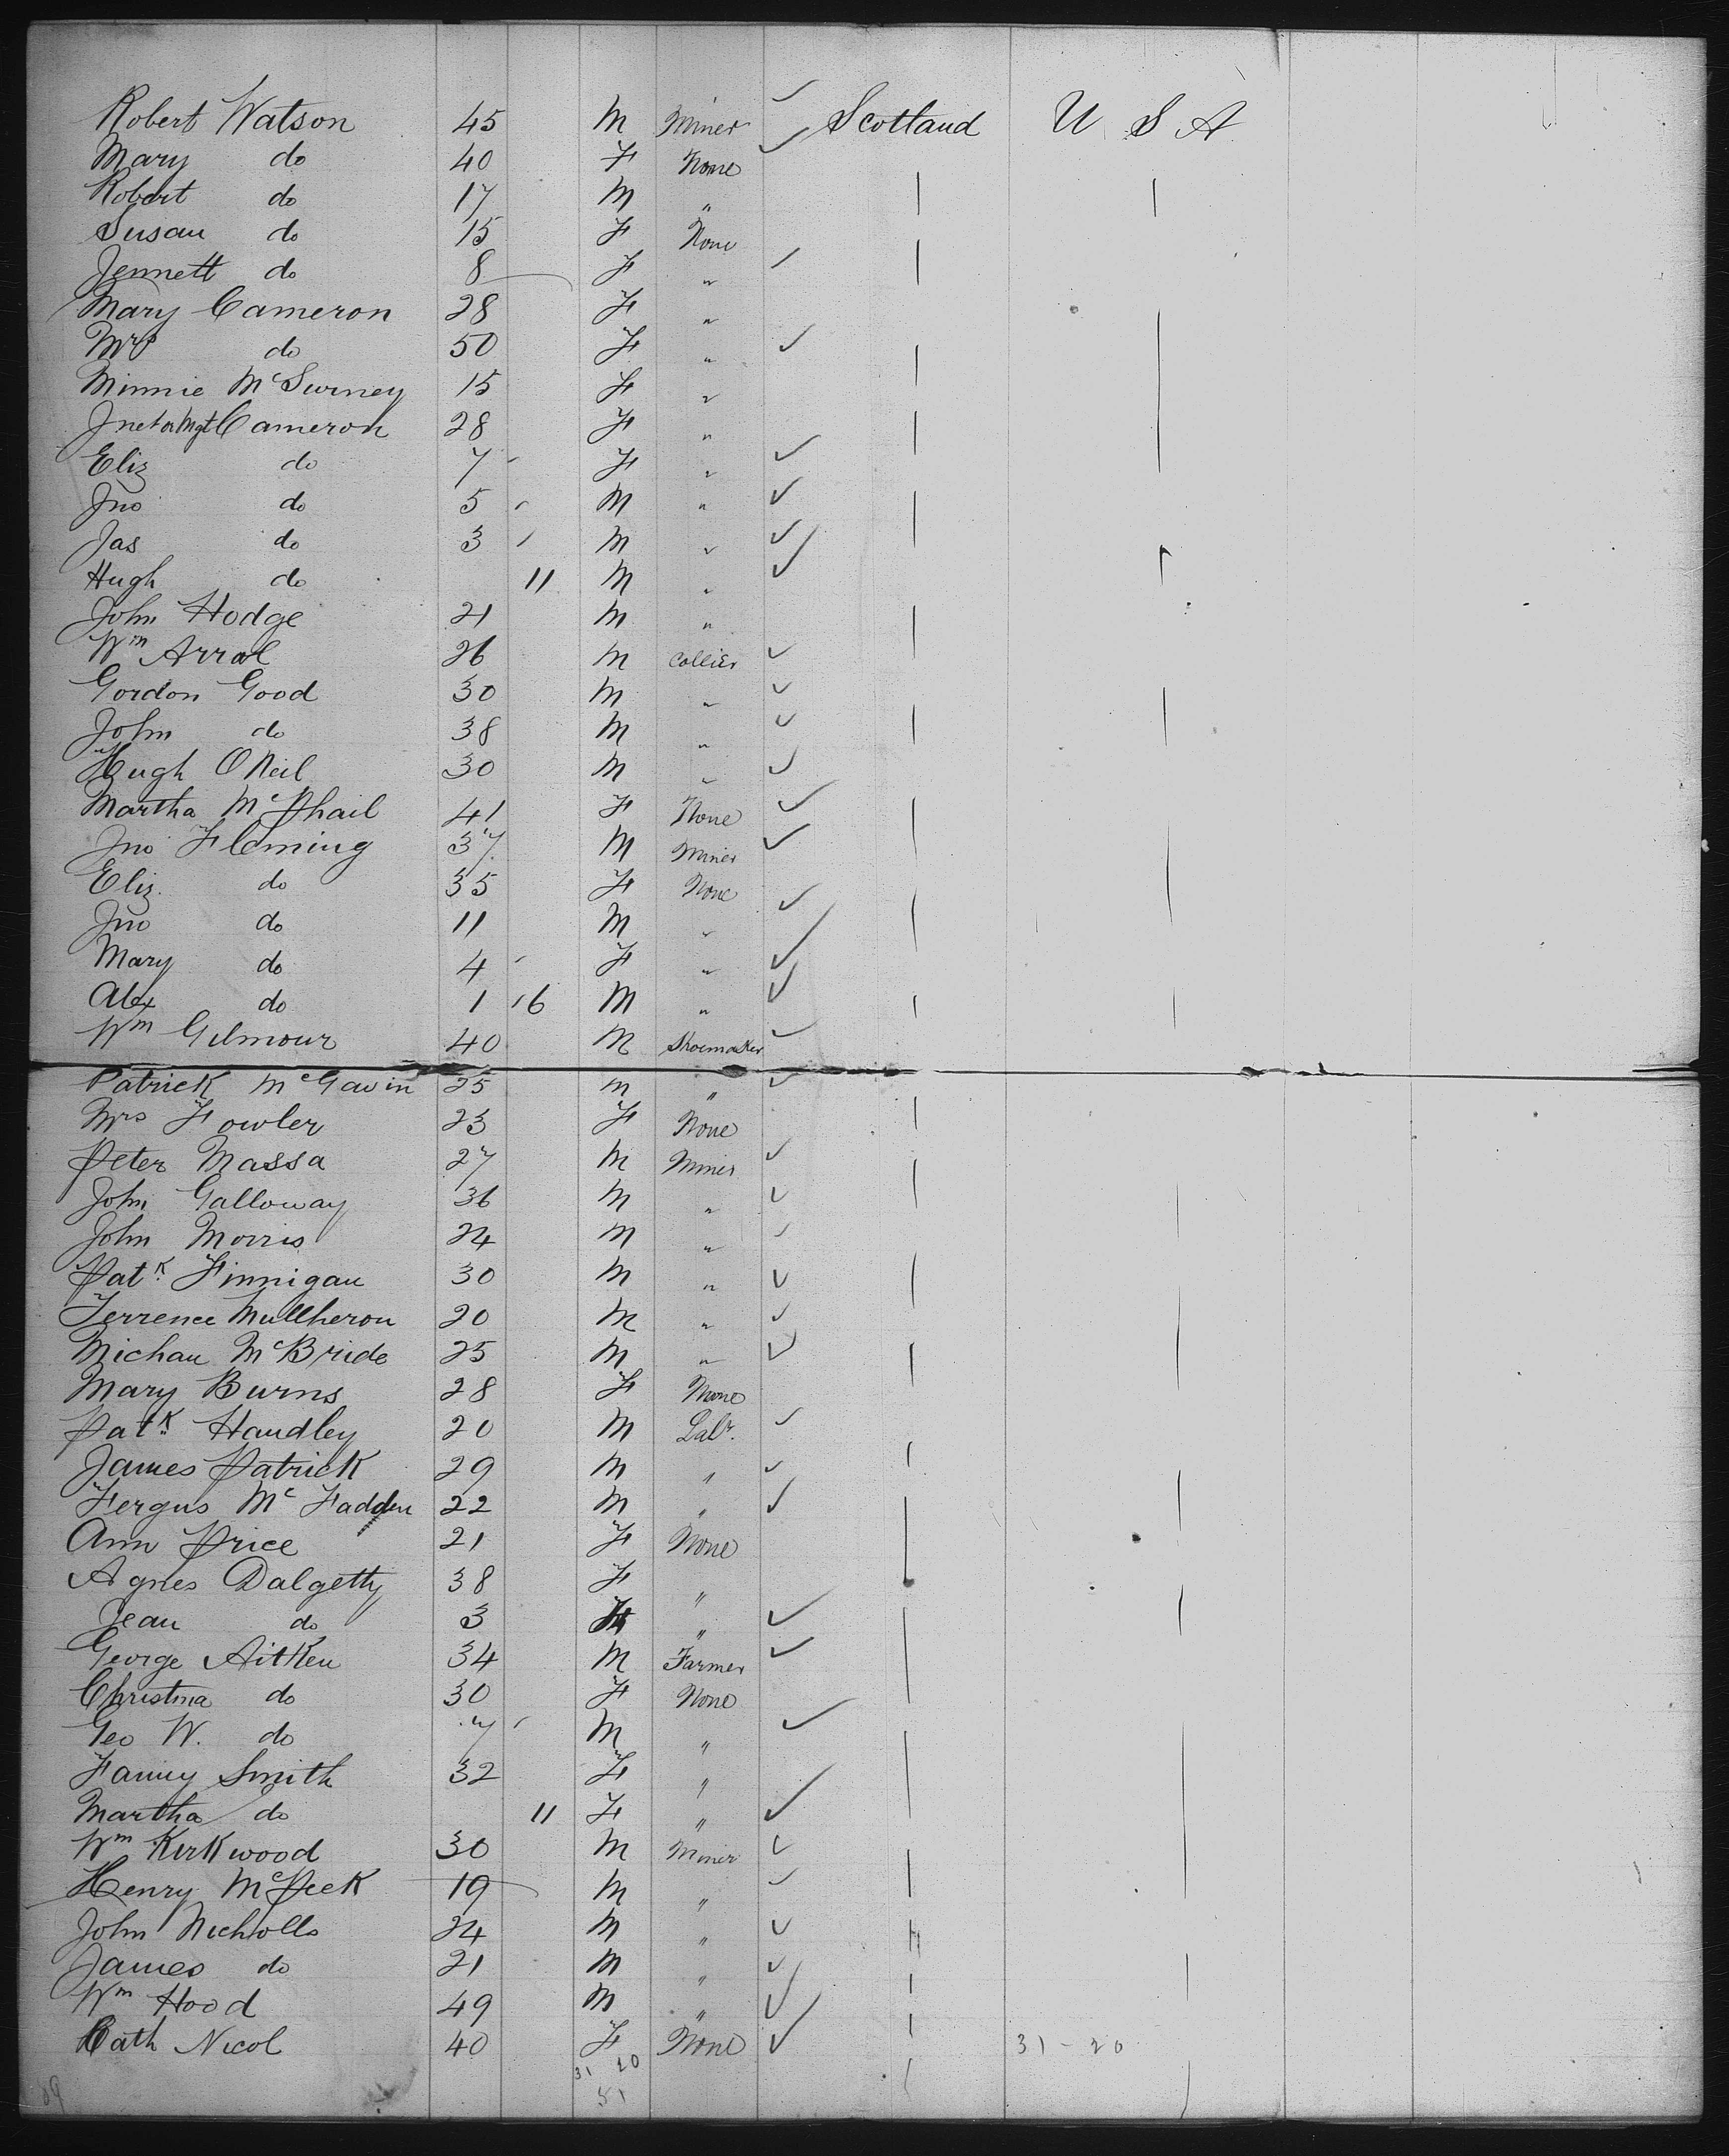 Robert Watson 45 M Miner Scotland U S A
Mary do 40 F None
Robert do 17 M "
Susan do 15 F None
Jennett do 8 F "
Mary Cameron 28 F "
Mrs do 50 F "
Minnie McSurney 15 F "
Jnet or Mgt Cameron 28 F "
Eliz do 7 F "
Jno do 5 M "
Jas do 3 M "
Hugh do 11 M "
John Hodge 21 M "
Wm Arrol 26 M Collier
Gordon Good 30 M "
John do 38 M "
Hugh O Neil 30 M "
Martha McPhail 41 F None
Jno Fleming 37 M Miner
Eliz. do 35 F None
Jno do 11 M "
Mary do 4 F "
Alex do 1 6 M "
Wm Gilmour 40 M Shoemaker
Patrick McGavin 25 M "
Mrs Fowler 23 F None
Peter Massa 27 M Miner
John Galloway 36 M "
John Morris 24 M "
Patk. Finnigan 30 M "
Terrence Mullheron 20 M "
Michau McBride 25 M "
Mary Burns 28 F None
Patk. Handley 20 M Labr.
James Patrick 29 M "
Fergus McFadden 22 M "
Ann Price 21 F None
Agnes Dalgetty 38 F "
Jean do 3 F "
George Aitken 34 M Farmer
Christina do 30 F None
Geo W. do 7 M "
Fanny Smith 32 F "
Martha do 11 F "
Wm Kirkwood 30 M Miner
Henry McPeek 19 M "
John Nicholls 24 M "
James do 21 M "
Wm Hood 49 M "
Cath Nicol 40 F None 31 - 20
31 20
51